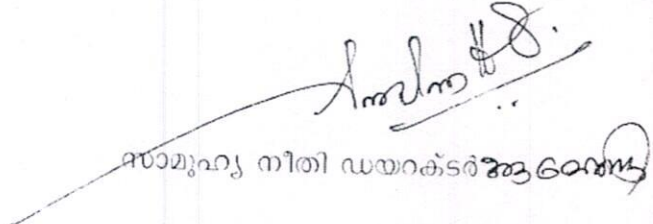 സാമൂഹ്യ നീതി ഡയറക്ടർക്കുവേണ്ടി